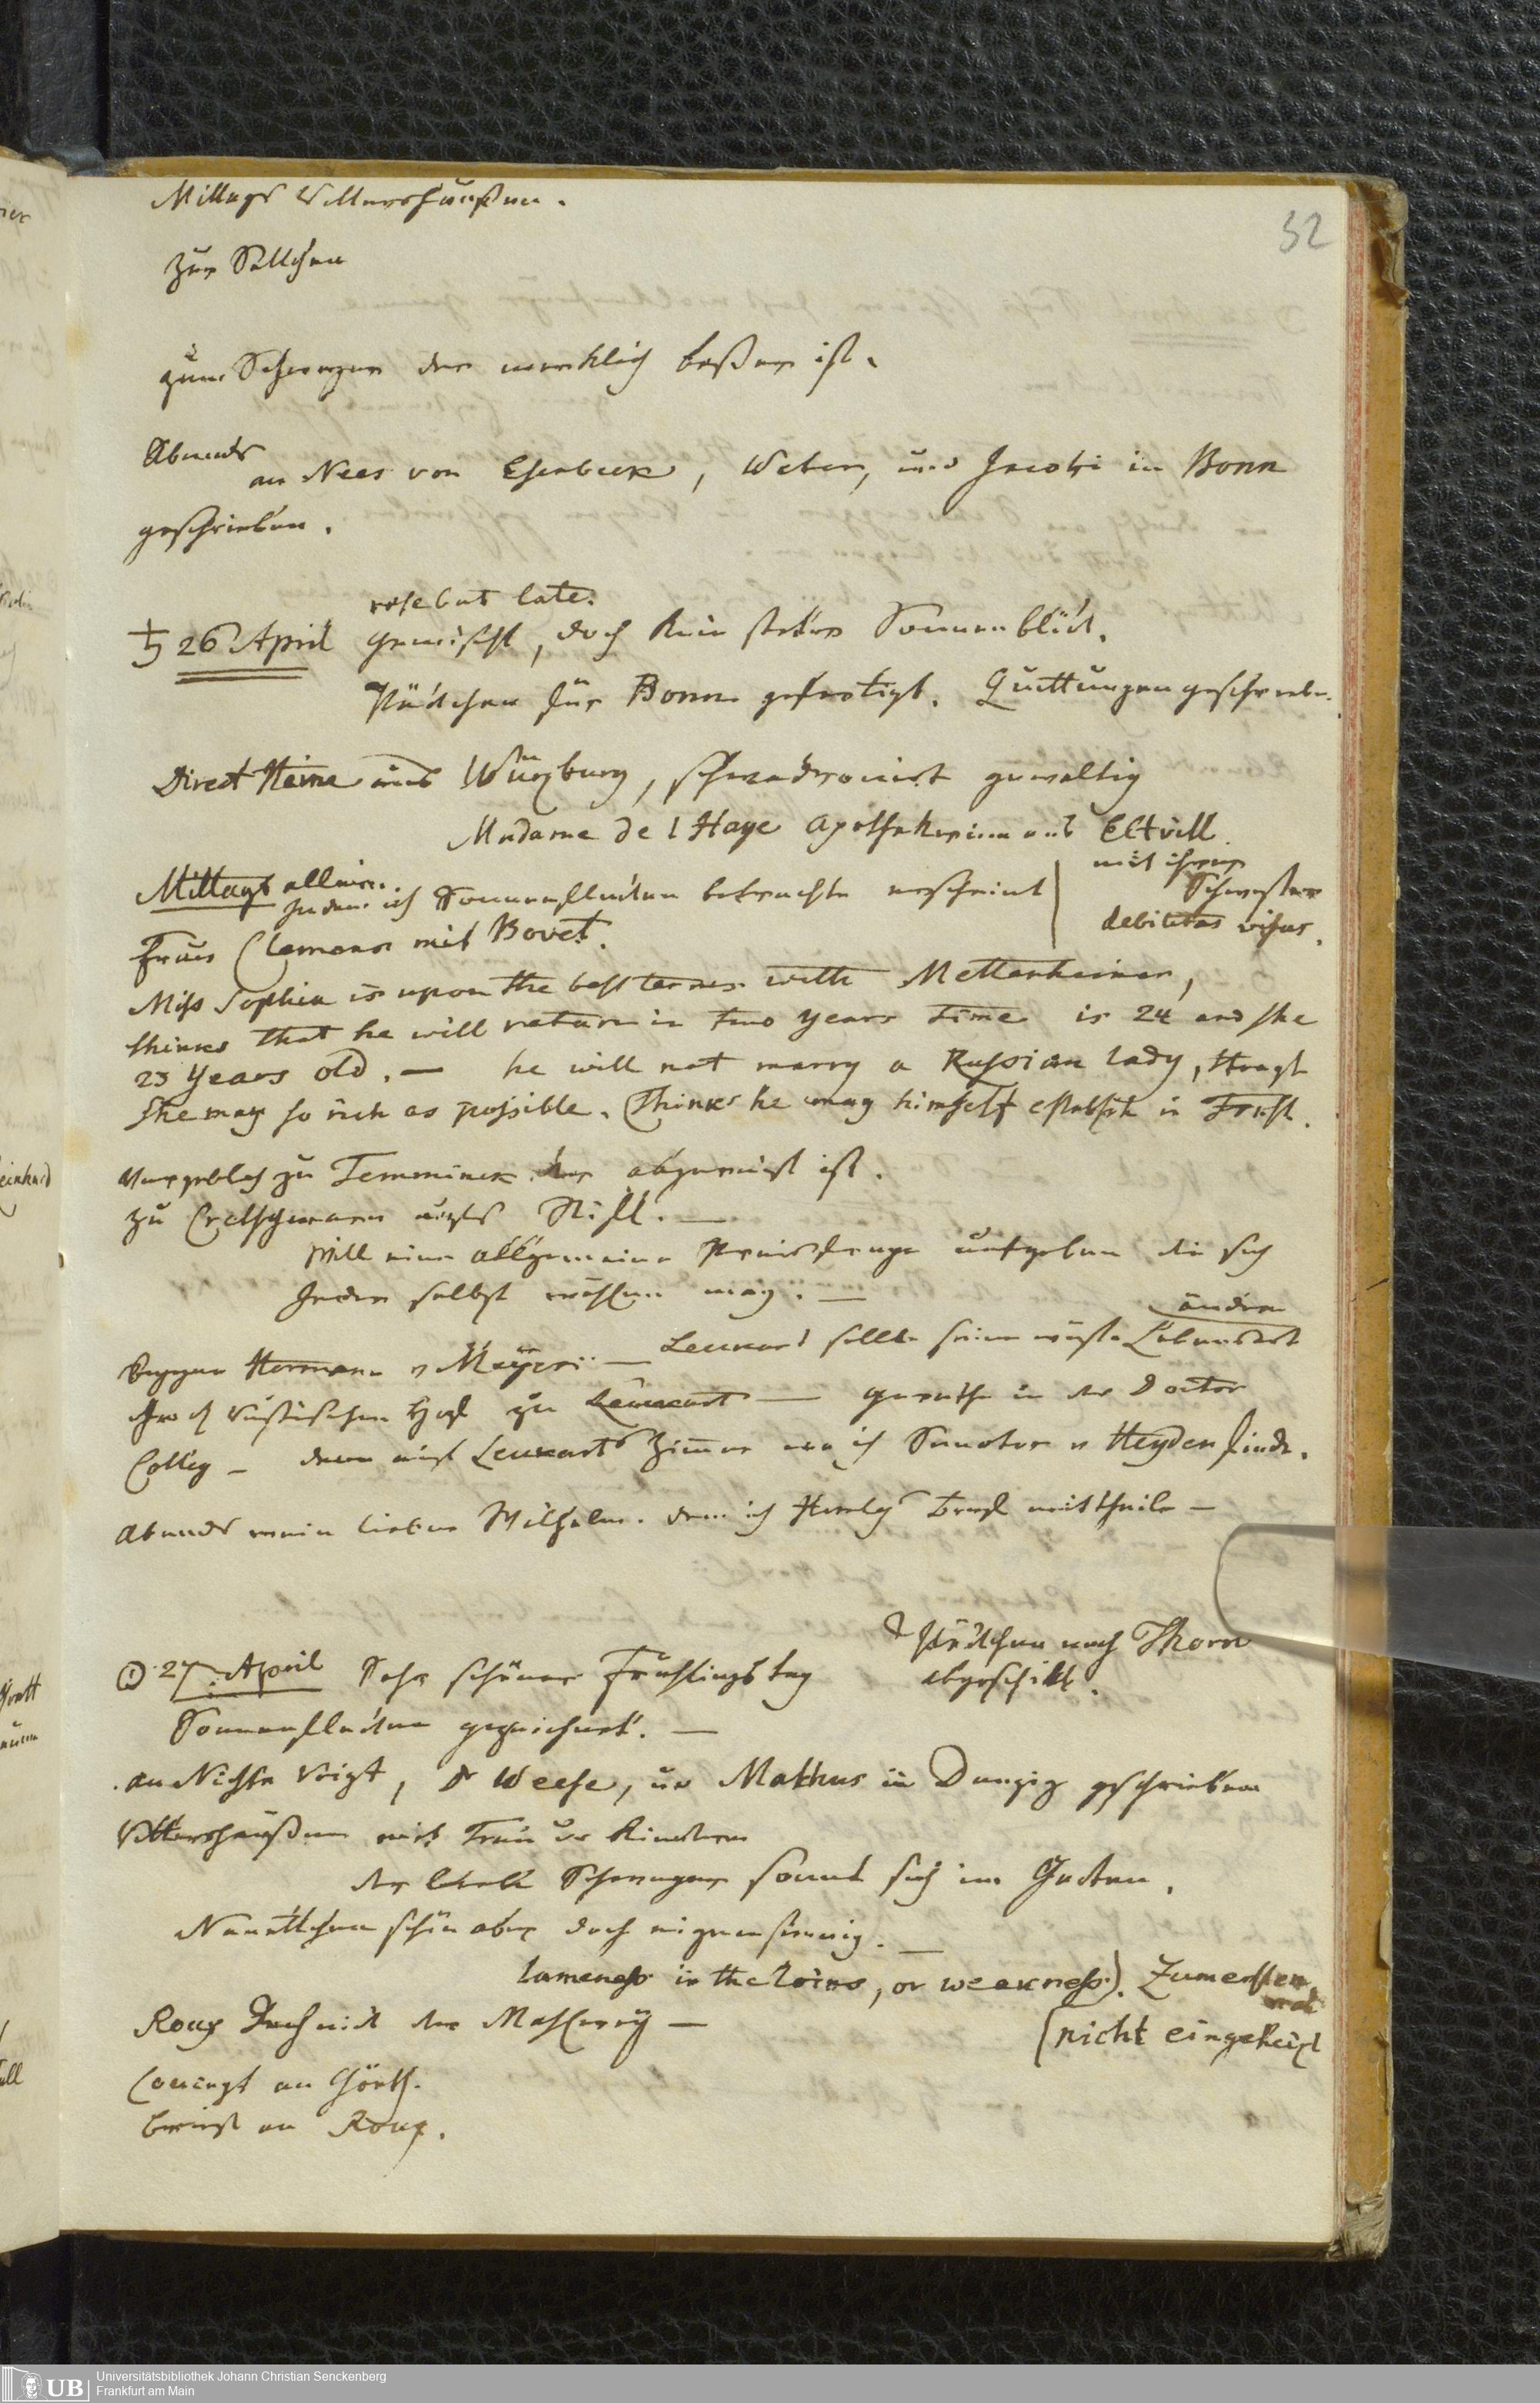 Mittags Vittershaußen.
32
Zur
zum Schwager der merklich beßer ist.
Abends
an Nees von Esenbeck, Weber, und Jacobi in Bonn
geschrieben.
rose but late.
♄ 26 April gemischt, doch kein steter Sonnenblick.
Päckchen für Bonn gefertigt. Quittungen geschrieben.
Direct Heine aus Würzburg, schwadronirt gewaltig
Madame de l Haye Apothekerinn aus Eltvill
mit ihrer
Schwester
debilitas visus.
Mittags allein.
Indem ich Sonnenflecken betrachte erscheint
Frau Clemens mit Bovet.
Miss Sophia is upon the best termes with Mettenheimer,
thinks that he will return in two years time is 24 and she
23 years old. — he will not marry a Russian lady, though
she may so rich as possible. Thinks he may himself establish in Frkft.
Vergeblich zu Temminck der abgereist ist.
zu Cretzschmar
Will eine allgemeine Preisfrage aufgeben die sich
Jeder selbst wählen mag. —
Hermann v Meyer. — Leuckart sollte seine Lebensart
ändern
zu Leuckart — gerathe in der Doctor
Colleg — dann auf Leuckarts Zimmer wo ich Senator v Heyden finde.
Abends mein lieber Wilhelm. dem ich Brief mittheile —
☉ 27. April Sehr schöner Frühlingstag
Päckchen nach Thorn
abgeschikt.
Sonnenflecken gezeichnet. —
an Nichte Voigt, Dr Weese, u Mathus in Danzig geschrieben
Vittershaußen mit Frau u Kindern
der Schwager sonnt sich im Garten.
Nanettchen schön aber doch eigensinnig. —
lameness in the loins, or weakness). Zum ersten
mal
(nicht eingeheizt
Roux —
an
an Roux.
Universitätsbibliothek Johann Christian Senckenberg
Frankfurt am Main
UB